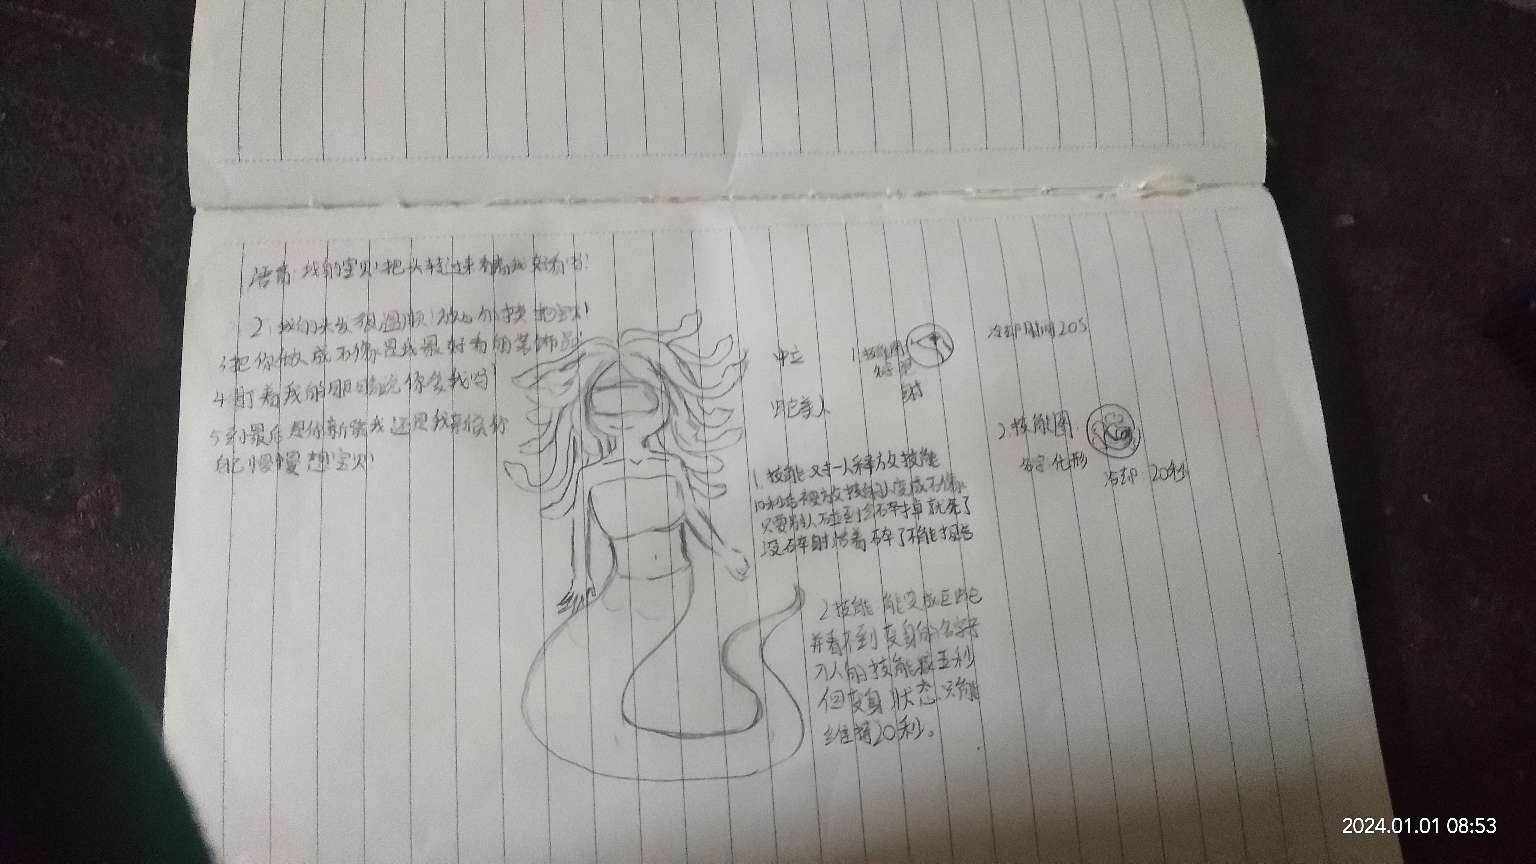 语言 我的宝贝!把头转过来看着我好看吗!
2 我的头发很温顺!放心的摸把宝贝!
3 把你做成石像是我最好看的装饰品!
4 盯着我的眼睛说你爱我吗!
5 到最后是你新
自己慢慢想!宝贝!
中立
蛇美人
1.技能图
名字
射
冷却时间20s
2.技能图
名字 化形
冷却 20秒
1.技能 对一人释放技能
10秒后被放技能的人变成石像
只要别人碰到会碎掉就死了
没碎时 碎了不能
2 技能 能变成巨蛇
并看不到变身的名字
刀人的技能 五秒
但变身状态只能
维持20秒。
2024.01.01 08:53